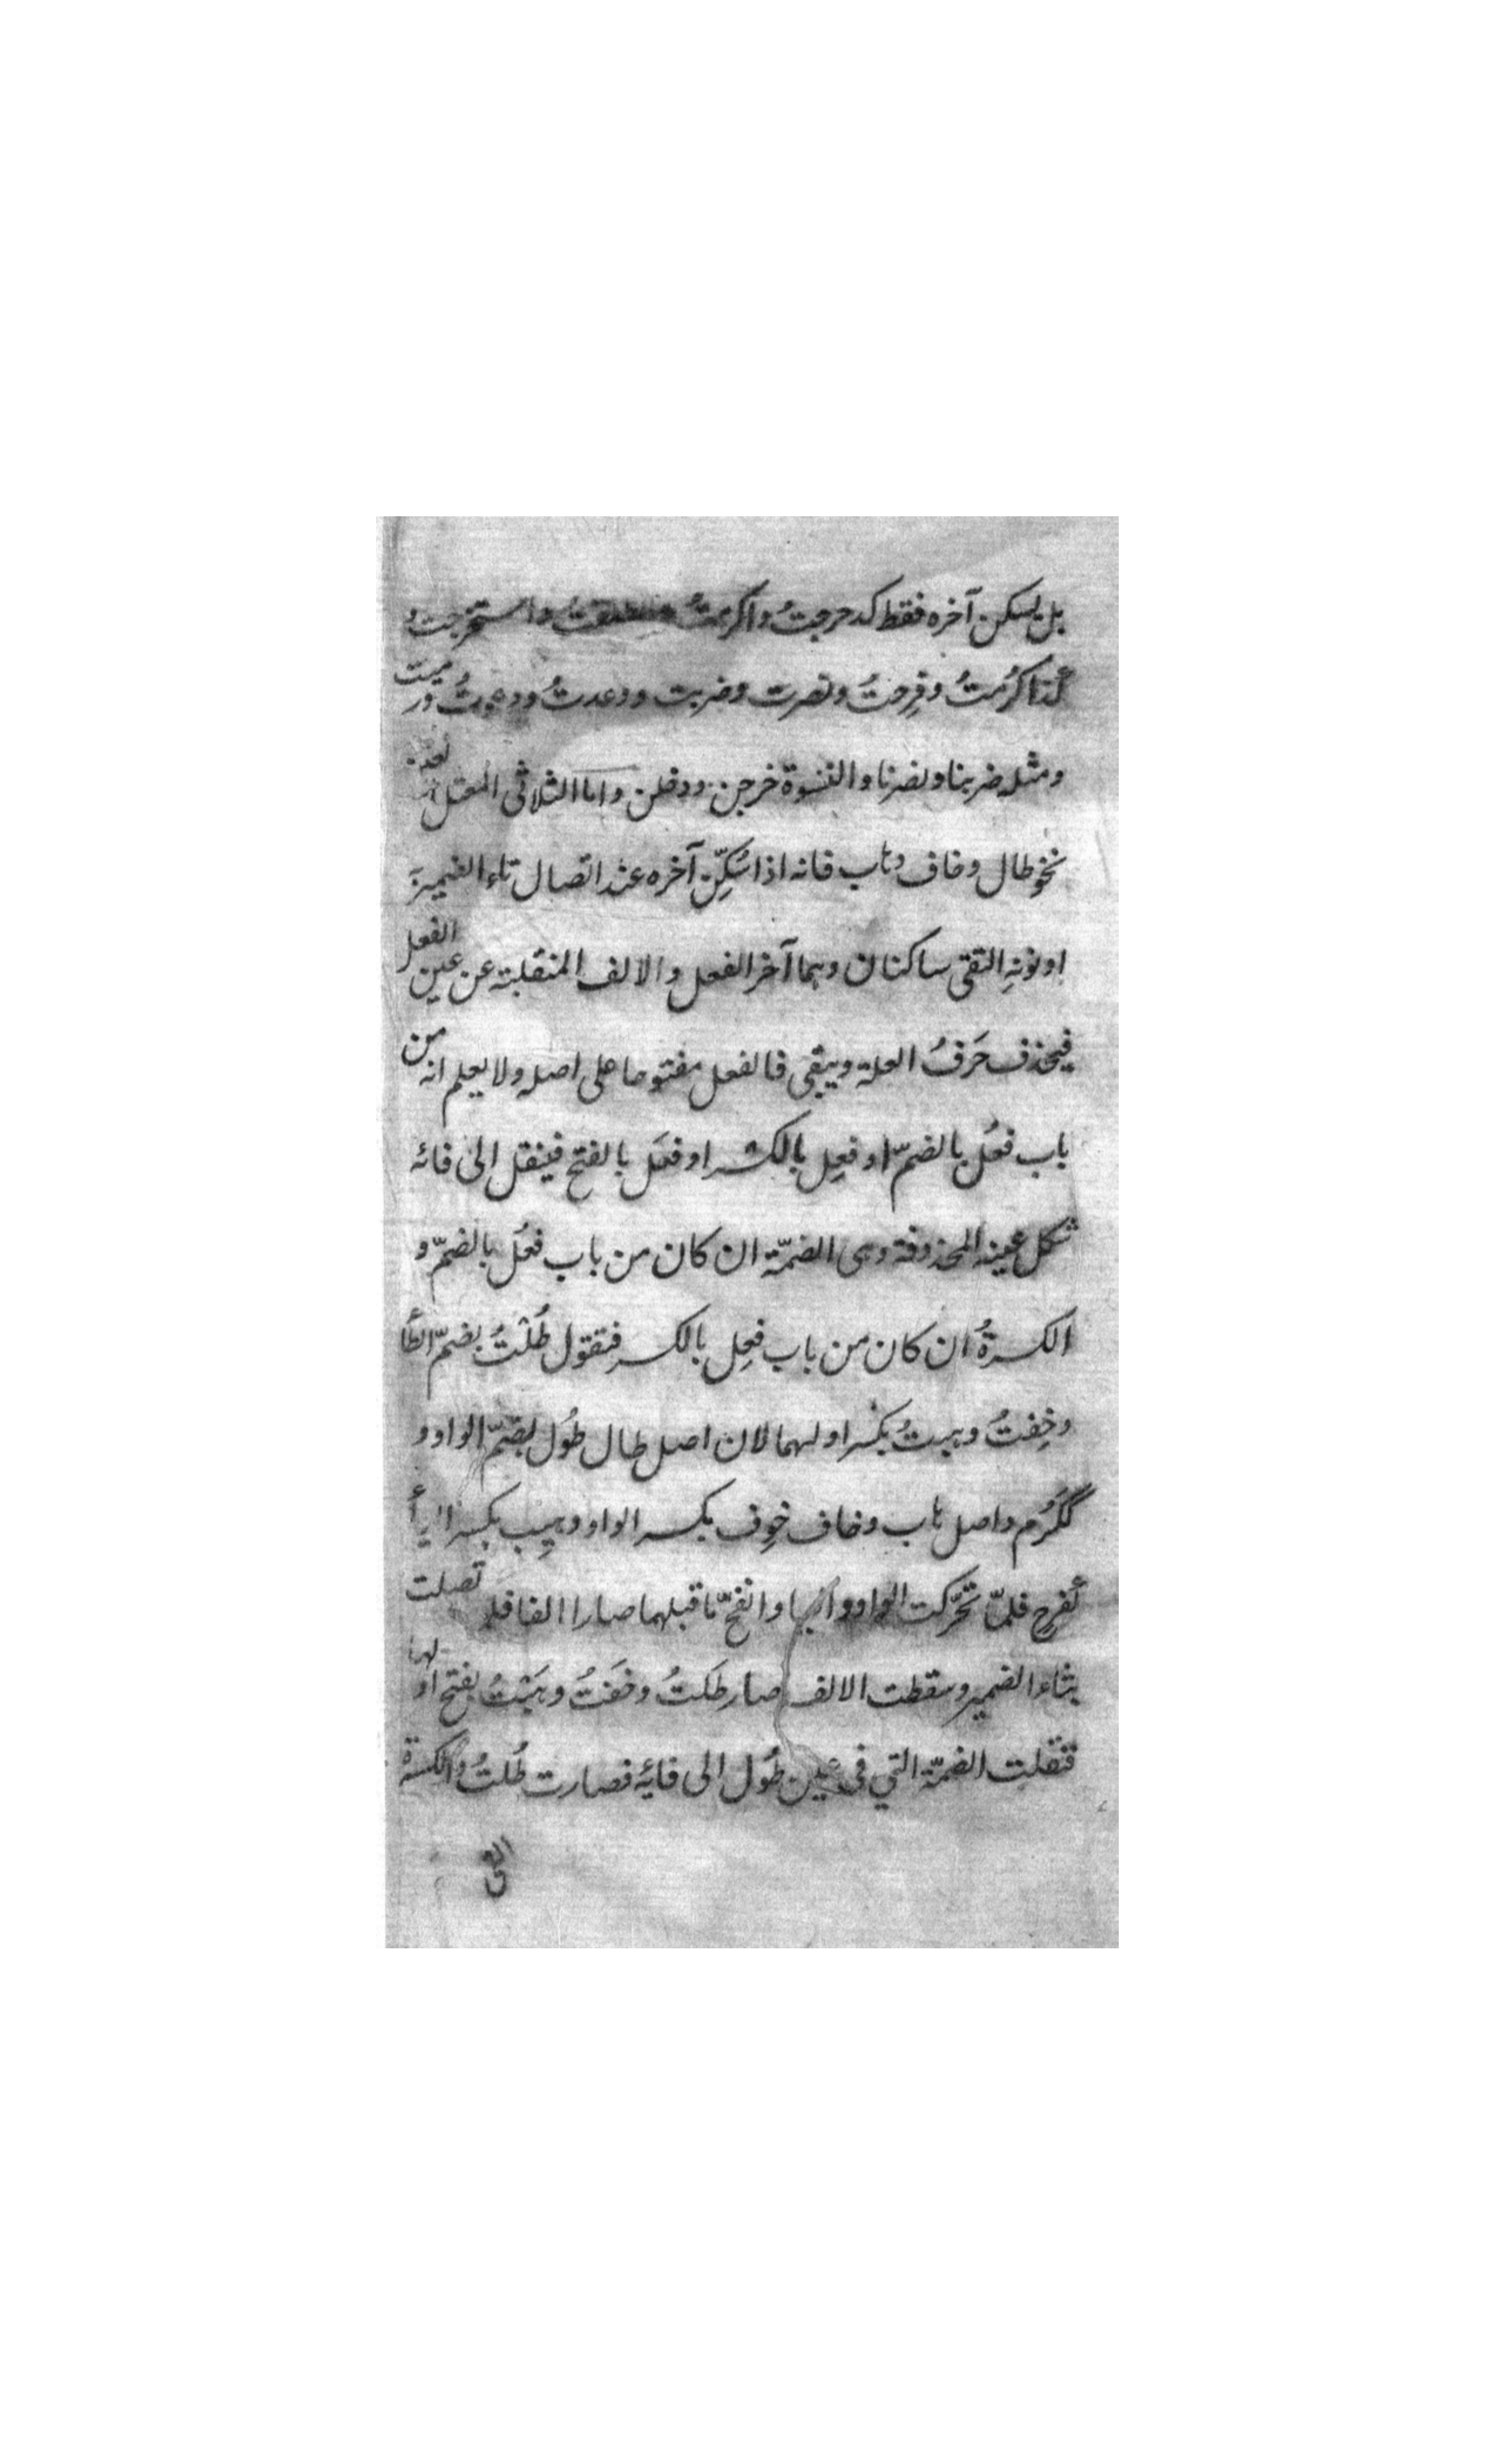 بل يسكن آخره فقط كدحرجتُ واكرمتُ وانطلقتُ واستخرجتُ
كذا كرُمتُ وفرِحتُ ونصرت وضربت ووعدتُ ودعوتُ ورميت
ومثله ضربنا ونصرنا والنسوة خرجن ودخلن واما الثلاثي المعتل
نحو طال وخاف وهاب فانه اذا سُكّن آخره عند اتصال تاء الضمير
او نونهِ التقى ساكنان وهما آخر الفعل والالف المنقلبة عن عين الفعل
فيحذف حَرفُ العلة ويبقى فا لفعل مفتوحا على اصله ولا يعلم انه من
باب فعُل بالضمّ او فعِل بالكسر او فعَل بالفتح فينقل الى فائه
شكل عينه المحذوفة وهى الضمّة ان كان من باب فعُل بالضمّ و
الكسرةُ ان كان من باب فعِل بالكسر فتقول طُلْتُ بضمّ الطا
وخِفتُ وهبتُ بكسر اولهما لان اصل طال طوُل بضمّ الواو و
ككَرُم واصل هاب وخاف خوِف بكسر الواو وهيِب بكسر اليأ
كفرِح فلمّ تحّركت الواو واليا وانفتّح ما قبلهما صارا الفا فلم تصلت
بتاء الضمير وسقطت الالف صار طَلتُ وخَفتُ وهَبْتُ بفتح اولهما
فنقلت الضمّة التي فى عين طوُل الى فائِه فصارت طُلتُ والكسرة
التى